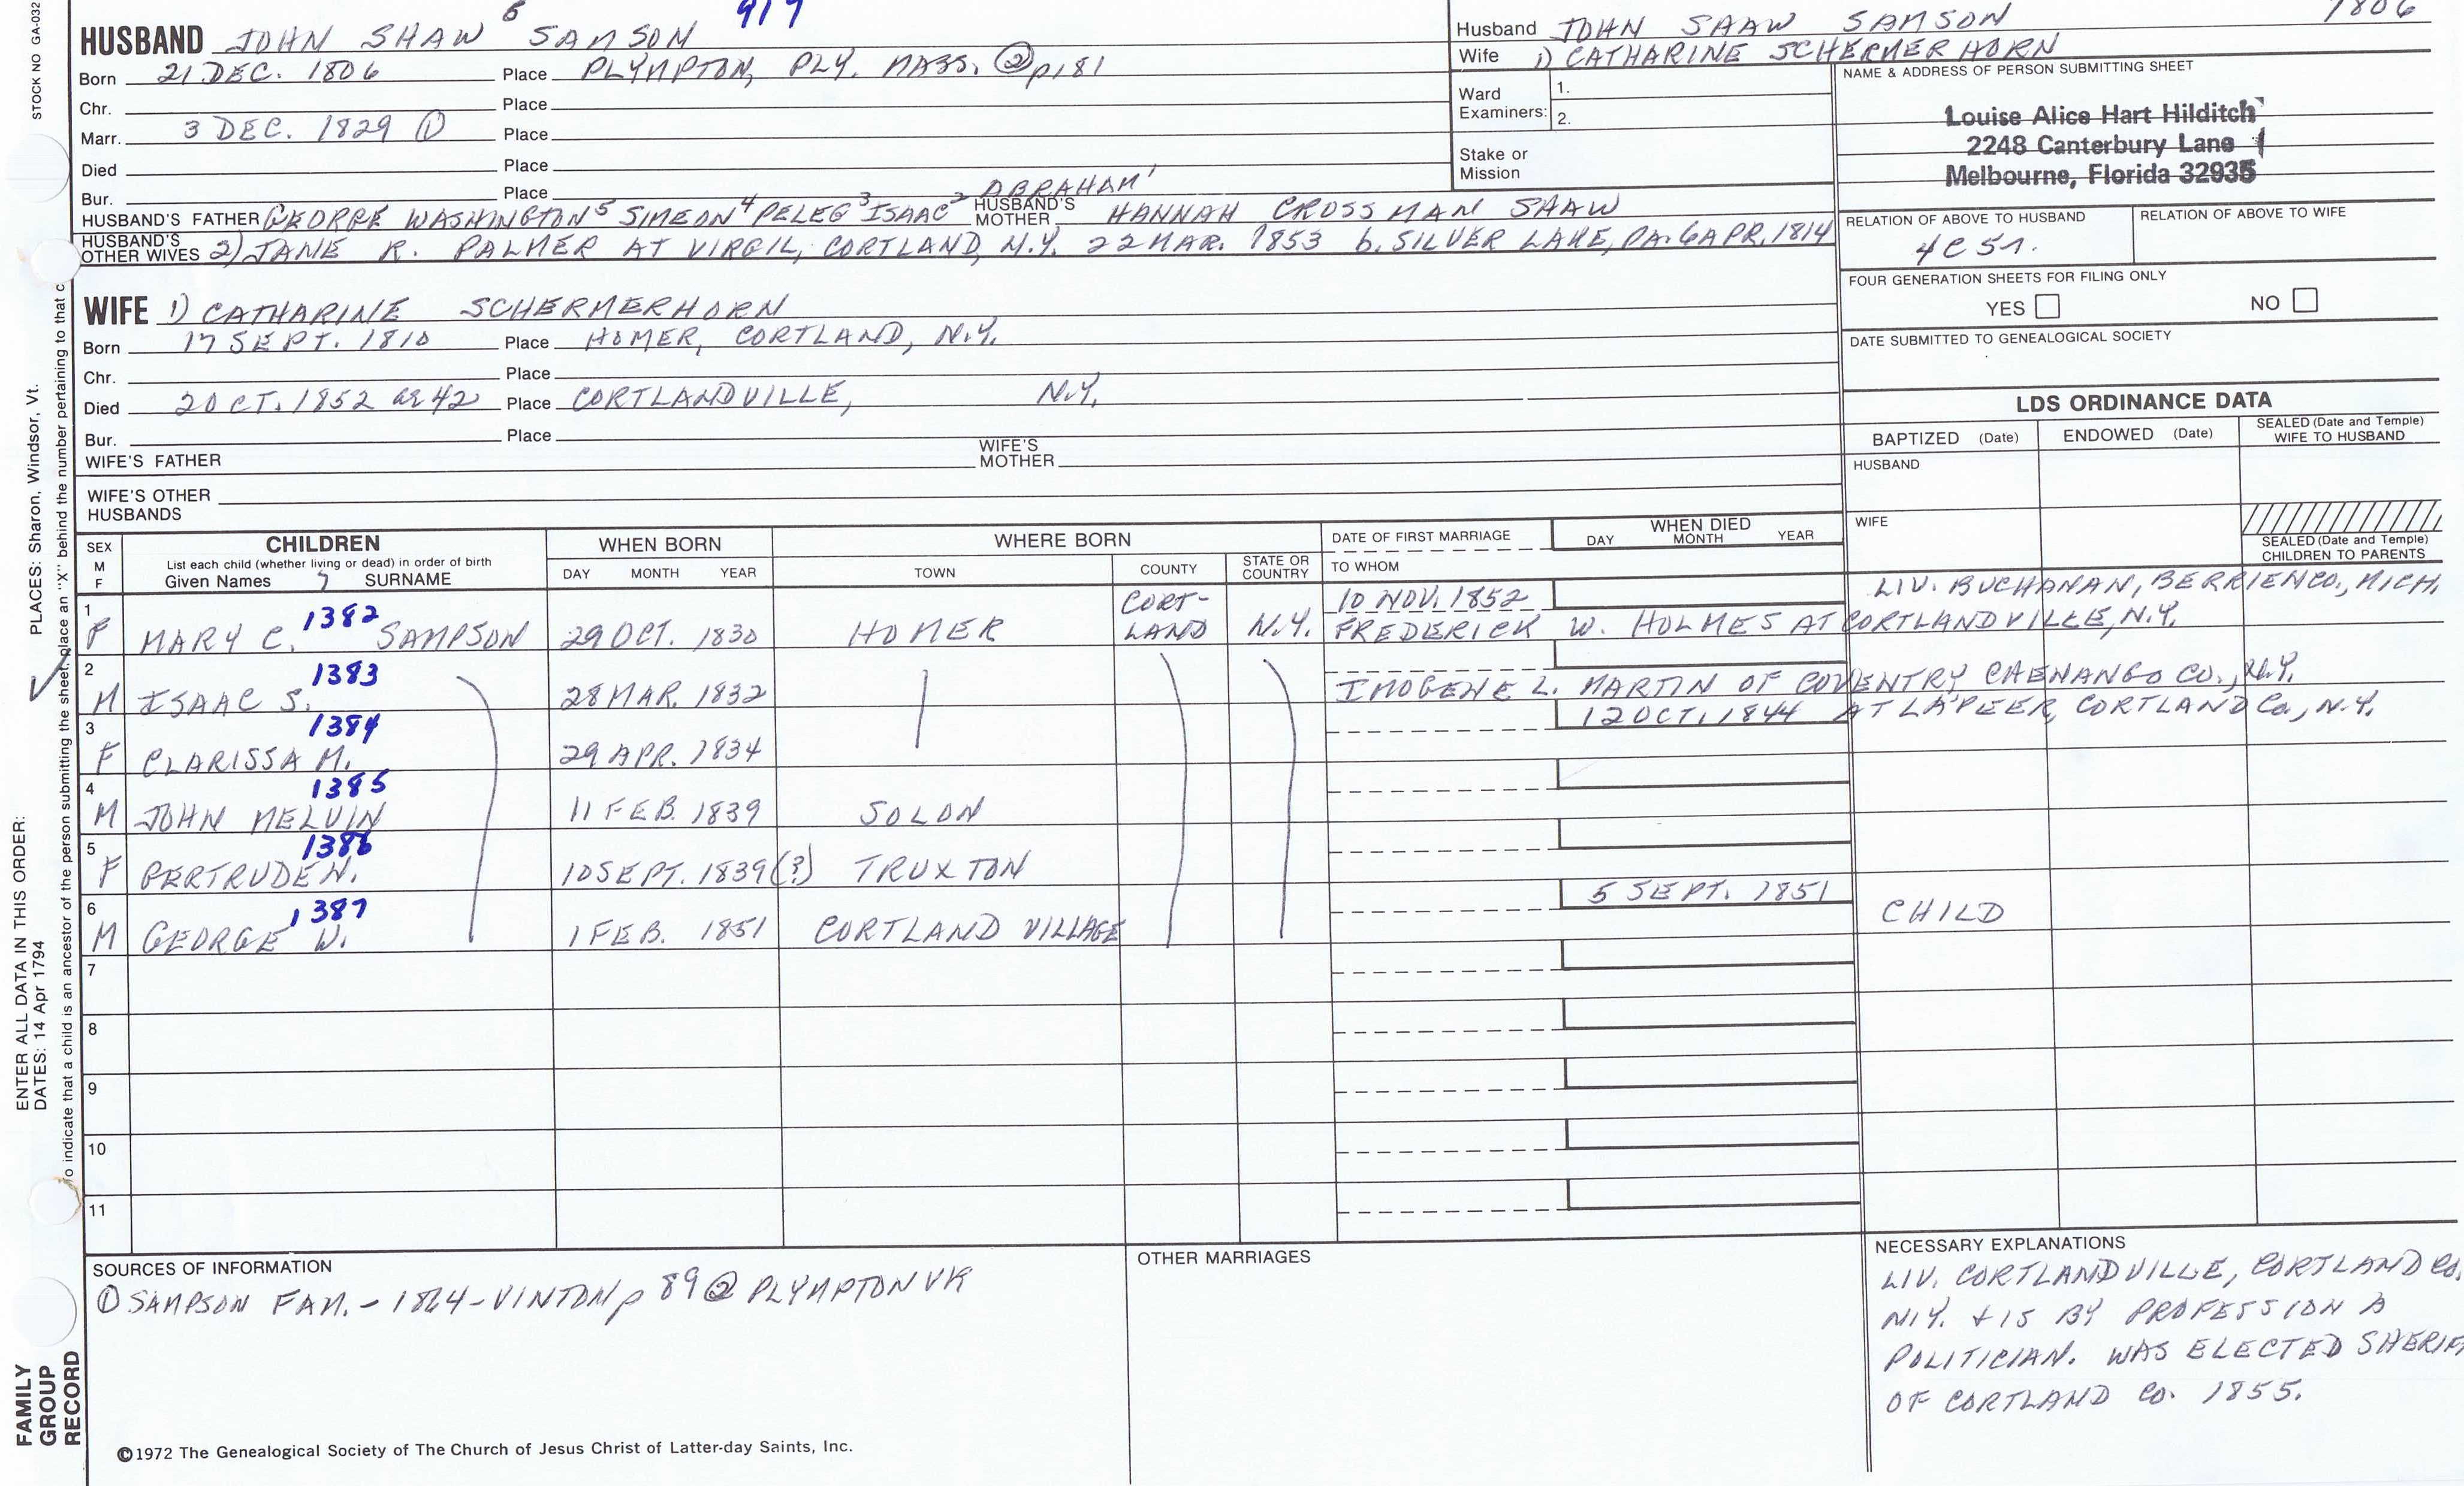 STOCK NO GA-032
HUSBAND JOHN SHAW 6 SAMSON 917
Born 21 DEC. 1806 Place PLYMPTON, PLY. MASS. ② p181
Chr. Place
Marr. 3 DEC. 1829 ① Place
Died Place
Bur. Place
ABRAHAM 1
HUSBAND'S FATHER GEORGE WASHINGTON 5 SIMEON 4 PELEG 3 ISAAC 2 HUSBAND'S MOTHER HANNAH CROSSMAN SHAW
HUSBAND'S OTHER WIVES 2) JANE R. PALMER AT VIRGIL, CORTLAND, N.Y. 22 MAR. 1853 b. SILVER LAKE, PA. 6 APR, 1814
Husband JOHN SHAW SAMSON 1806
Wife 1) CATHARINE SCHERMERHORN
Ward Examiners: 1.
2.
Stake or Mission
NAME & ADDRESS OF PERSON SUBMITTING SHEET
Louise Alice Hart Hilditch
2248 Canterbury Lane
Melbourne, Florida 32935
RELATION OF ABOVE TO HUSBAND
RELATION OF ABOVE TO WIFE
4C5r.
FOUR GENERATION SHEETS FOR FILING ONLY
YES NO
DATE SUBMITTED TO GENEALOGICAL SOCIETY
WIFE 1) CATHARINE SCHERMERHORN
Born 17 SEPT. 1810 Place HOMER, CORTLAND, N.Y.
Chr. Place
Died 2 OCT. 1852 ae 42 Place CORTLANDVILLE, N.Y.
Bur. Place
WIFE'S FATHER WIFE'S MOTHER
WIFE'S OTHER HUSBANDS
LDS ORDINANCE DATA
BAPTIZED (Date) ENDOWED (Date) SEALED (Date and Temple) WIFE TO HUSBAND
HUSBAND
WIFE
SEALED (Date and Temple) CHILDREN TO PARENTS
SEX M F
CHILDREN
List each child (whether living or dead) in order of birth
Given Names 7 SURNAME
WHEN BORN
DAY MONTH YEAR
WHERE BORN
TOWN COUNTY STATE OR COUNTRY
DATE OF FIRST MARRIAGE
TO WHOM
WHEN DIED
DAY MONTH YEAR
1 F MARY C. 1382 SAMPSON 29 OCT. 1830 HOMER CORT-LAND N.Y. 10 NOV. 1852 LIV. BUCHANAN, BERRIEN CO., MICH.
FREDERICK W. HOLMES AT CORTLANDVILLE, N.Y.
2 M ISAAC S. 1383 28 MAR. 1832 IMOGENE L. MARTIN OF COVENTRY CHENANGO CO., N.Y.
3 F CLARISSA M. 1384 29 APR. 1834 12 OCT. 1844 AT LAPEER, CORTLAND Co., N.Y.
4 M JOHN MELVIN 1385 11 FEB. 1839 SOLON
5 F GERTRUDE N. 1386 10 SEPT. 1839(?) TRUXTON
6 M GEORGE W. 1387 1 FEB. 1851 CORTLAND VILLAGE 5 SEPT. 1851 CHILD
7
8
9
10
11
SOURCES OF INFORMATION
① SAMPSON FAM. - 1864 - VINTON p 89 ② PLYMPTON VR
OTHER MARRIAGES
NECESSARY EXPLANATIONS
LIV. CORTLANDVILLE, CORTLAND Co.
N.Y. + IS BY PROFESSION A
POLITICIAN. WAS ELECTED SHERIF
OF CORTLAND Co. 1855.
©1972 The Genealogical Society of The Church of Jesus Christ of Latter-day Saints, Inc.
FAMILY
GROUP
RECORD
ENTER ALL DATA IN THIS ORDER:
DATES: 14 Apr 1794
PLACES: Sharon, Windsor, Vt.
To indicate that a child is an ancestor of the person submitting the sheet, place an "X" behind the number pertaining to that c